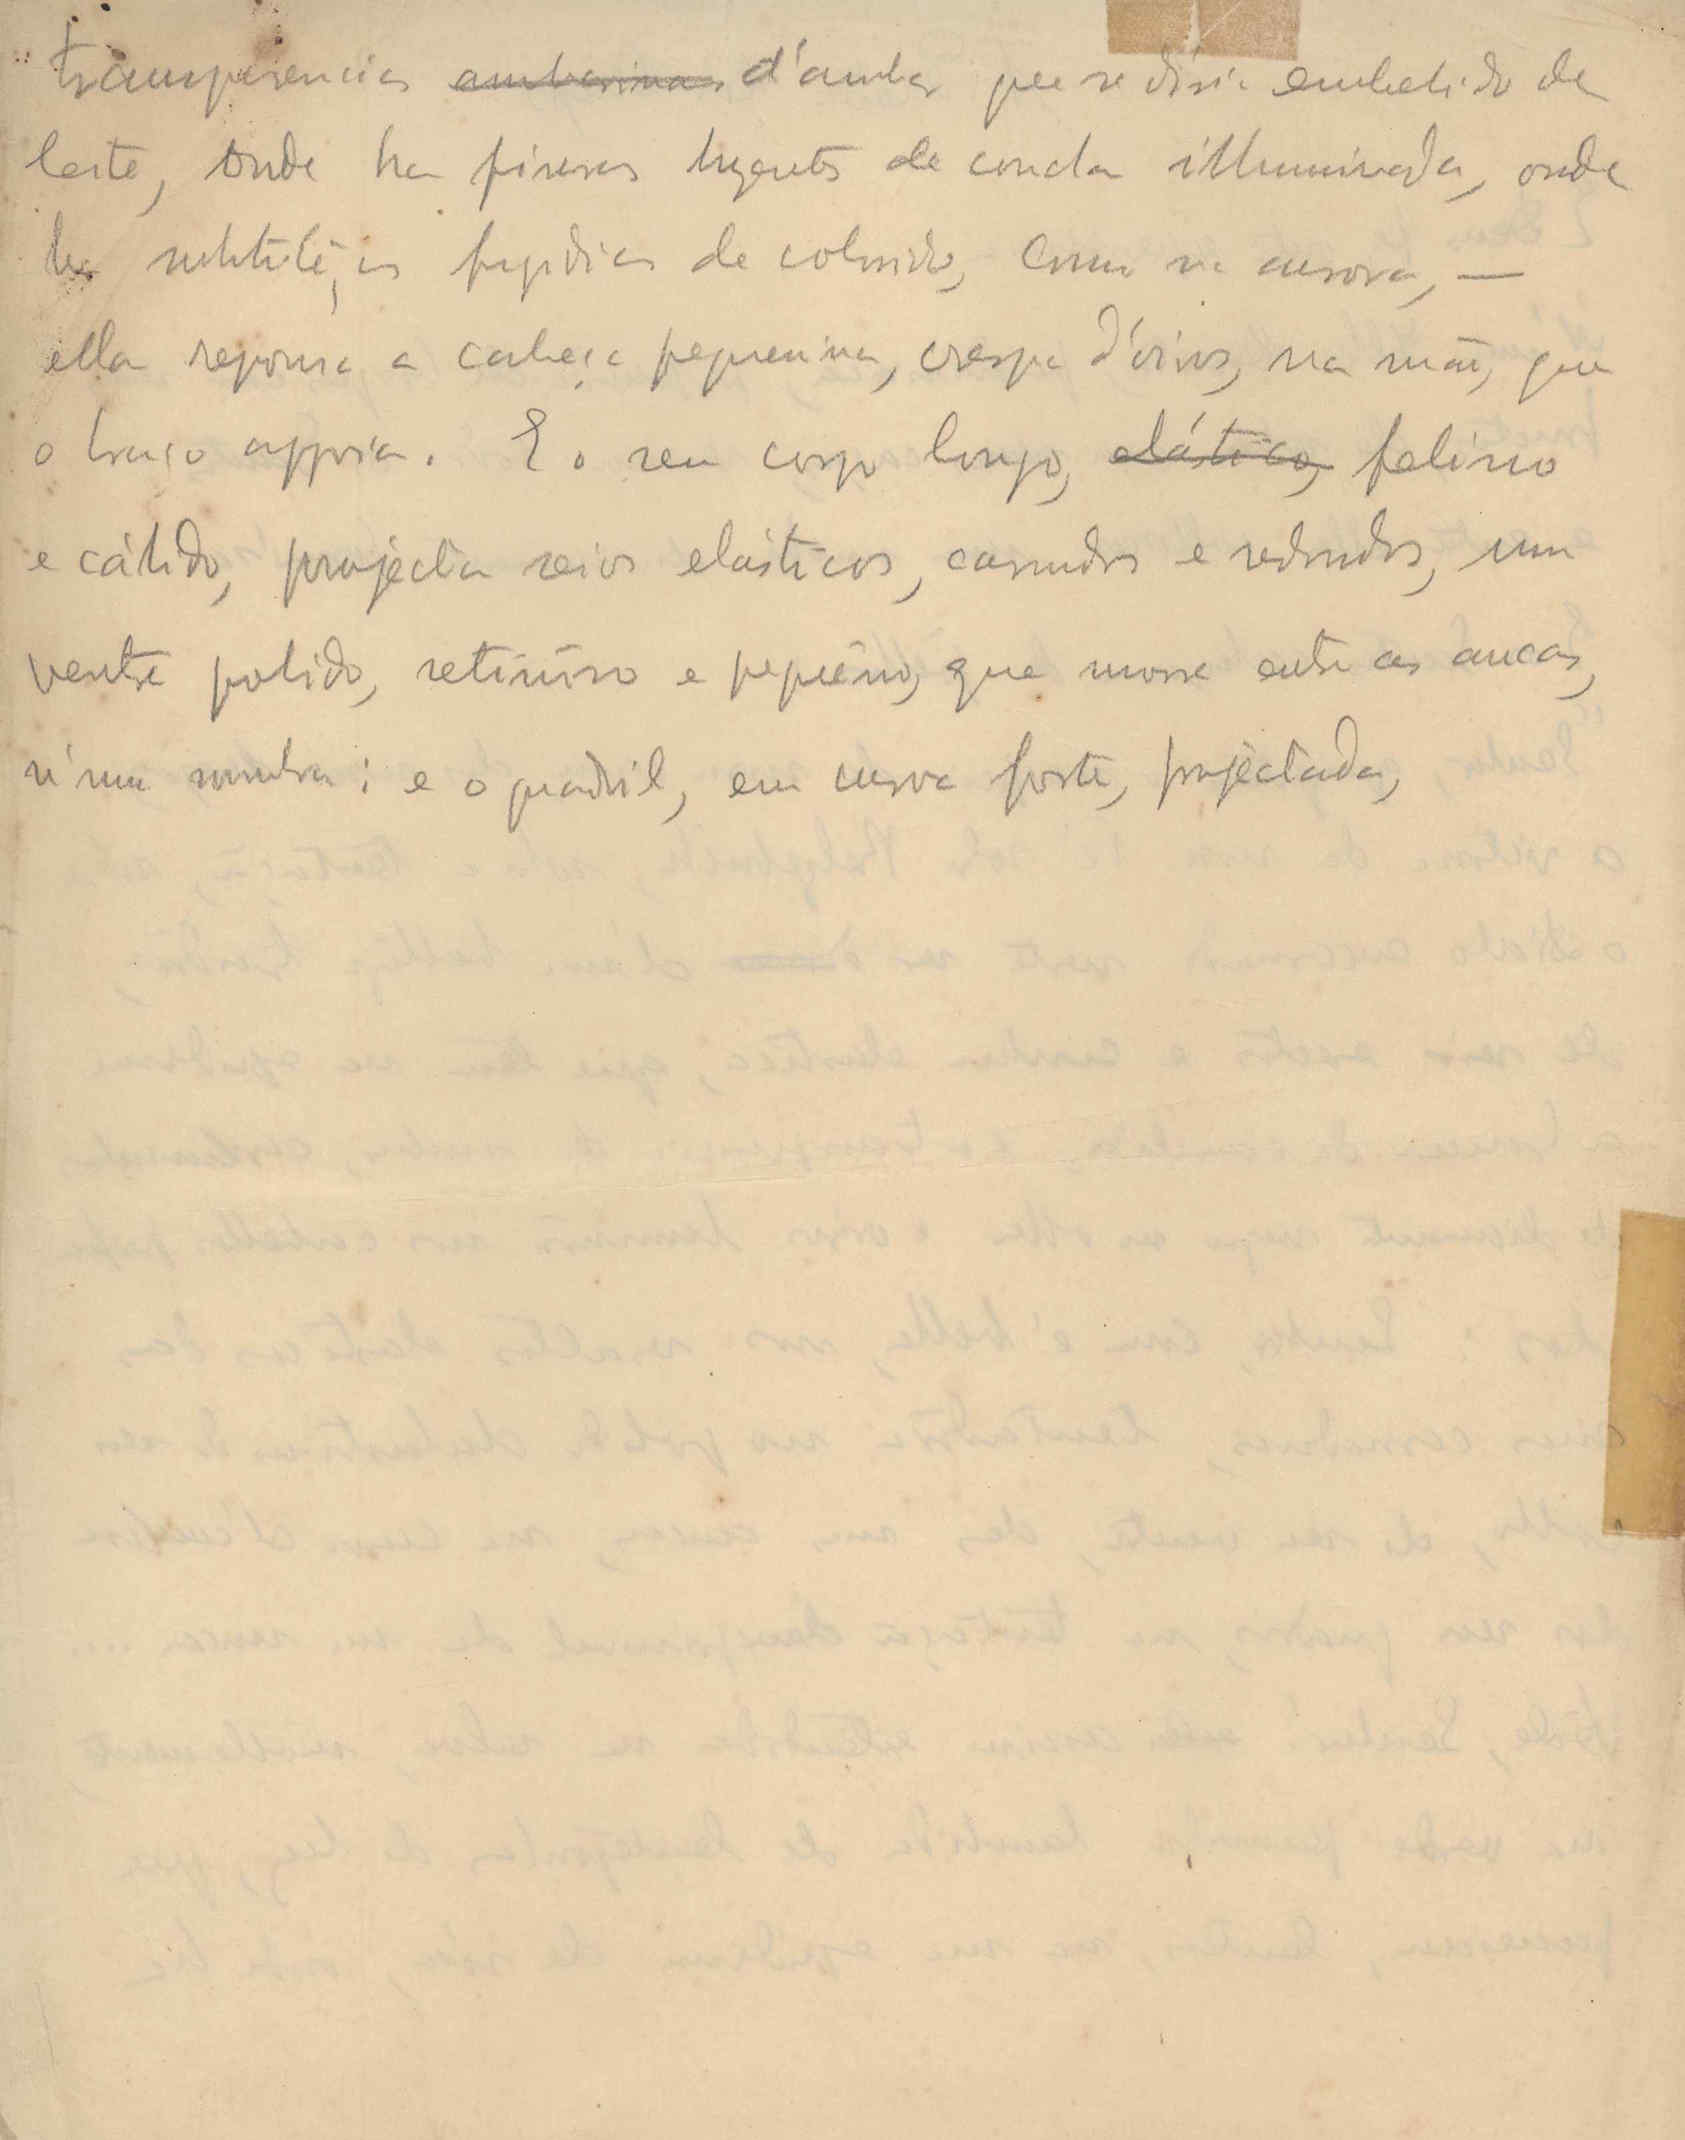 transparencias ambarinas d'ambar que se diria embebido de
leite, onde ha finuras lugentes de concha illuminada, onde
ha subtilêzas fugidias de colorido, como na aurora, —
ella repousa a cabeça pequenina, crespa d'oiros, na mão, que
o braço appoia. E o seu corpo longo, elástico, felino
e cálido, projecta seios elásticos, carnudos e redondos, um
ventre polido, setinôso e pequêno, que morre entre as ancas,
n'uma sombra; e o quadril, em curva forte, projectada,